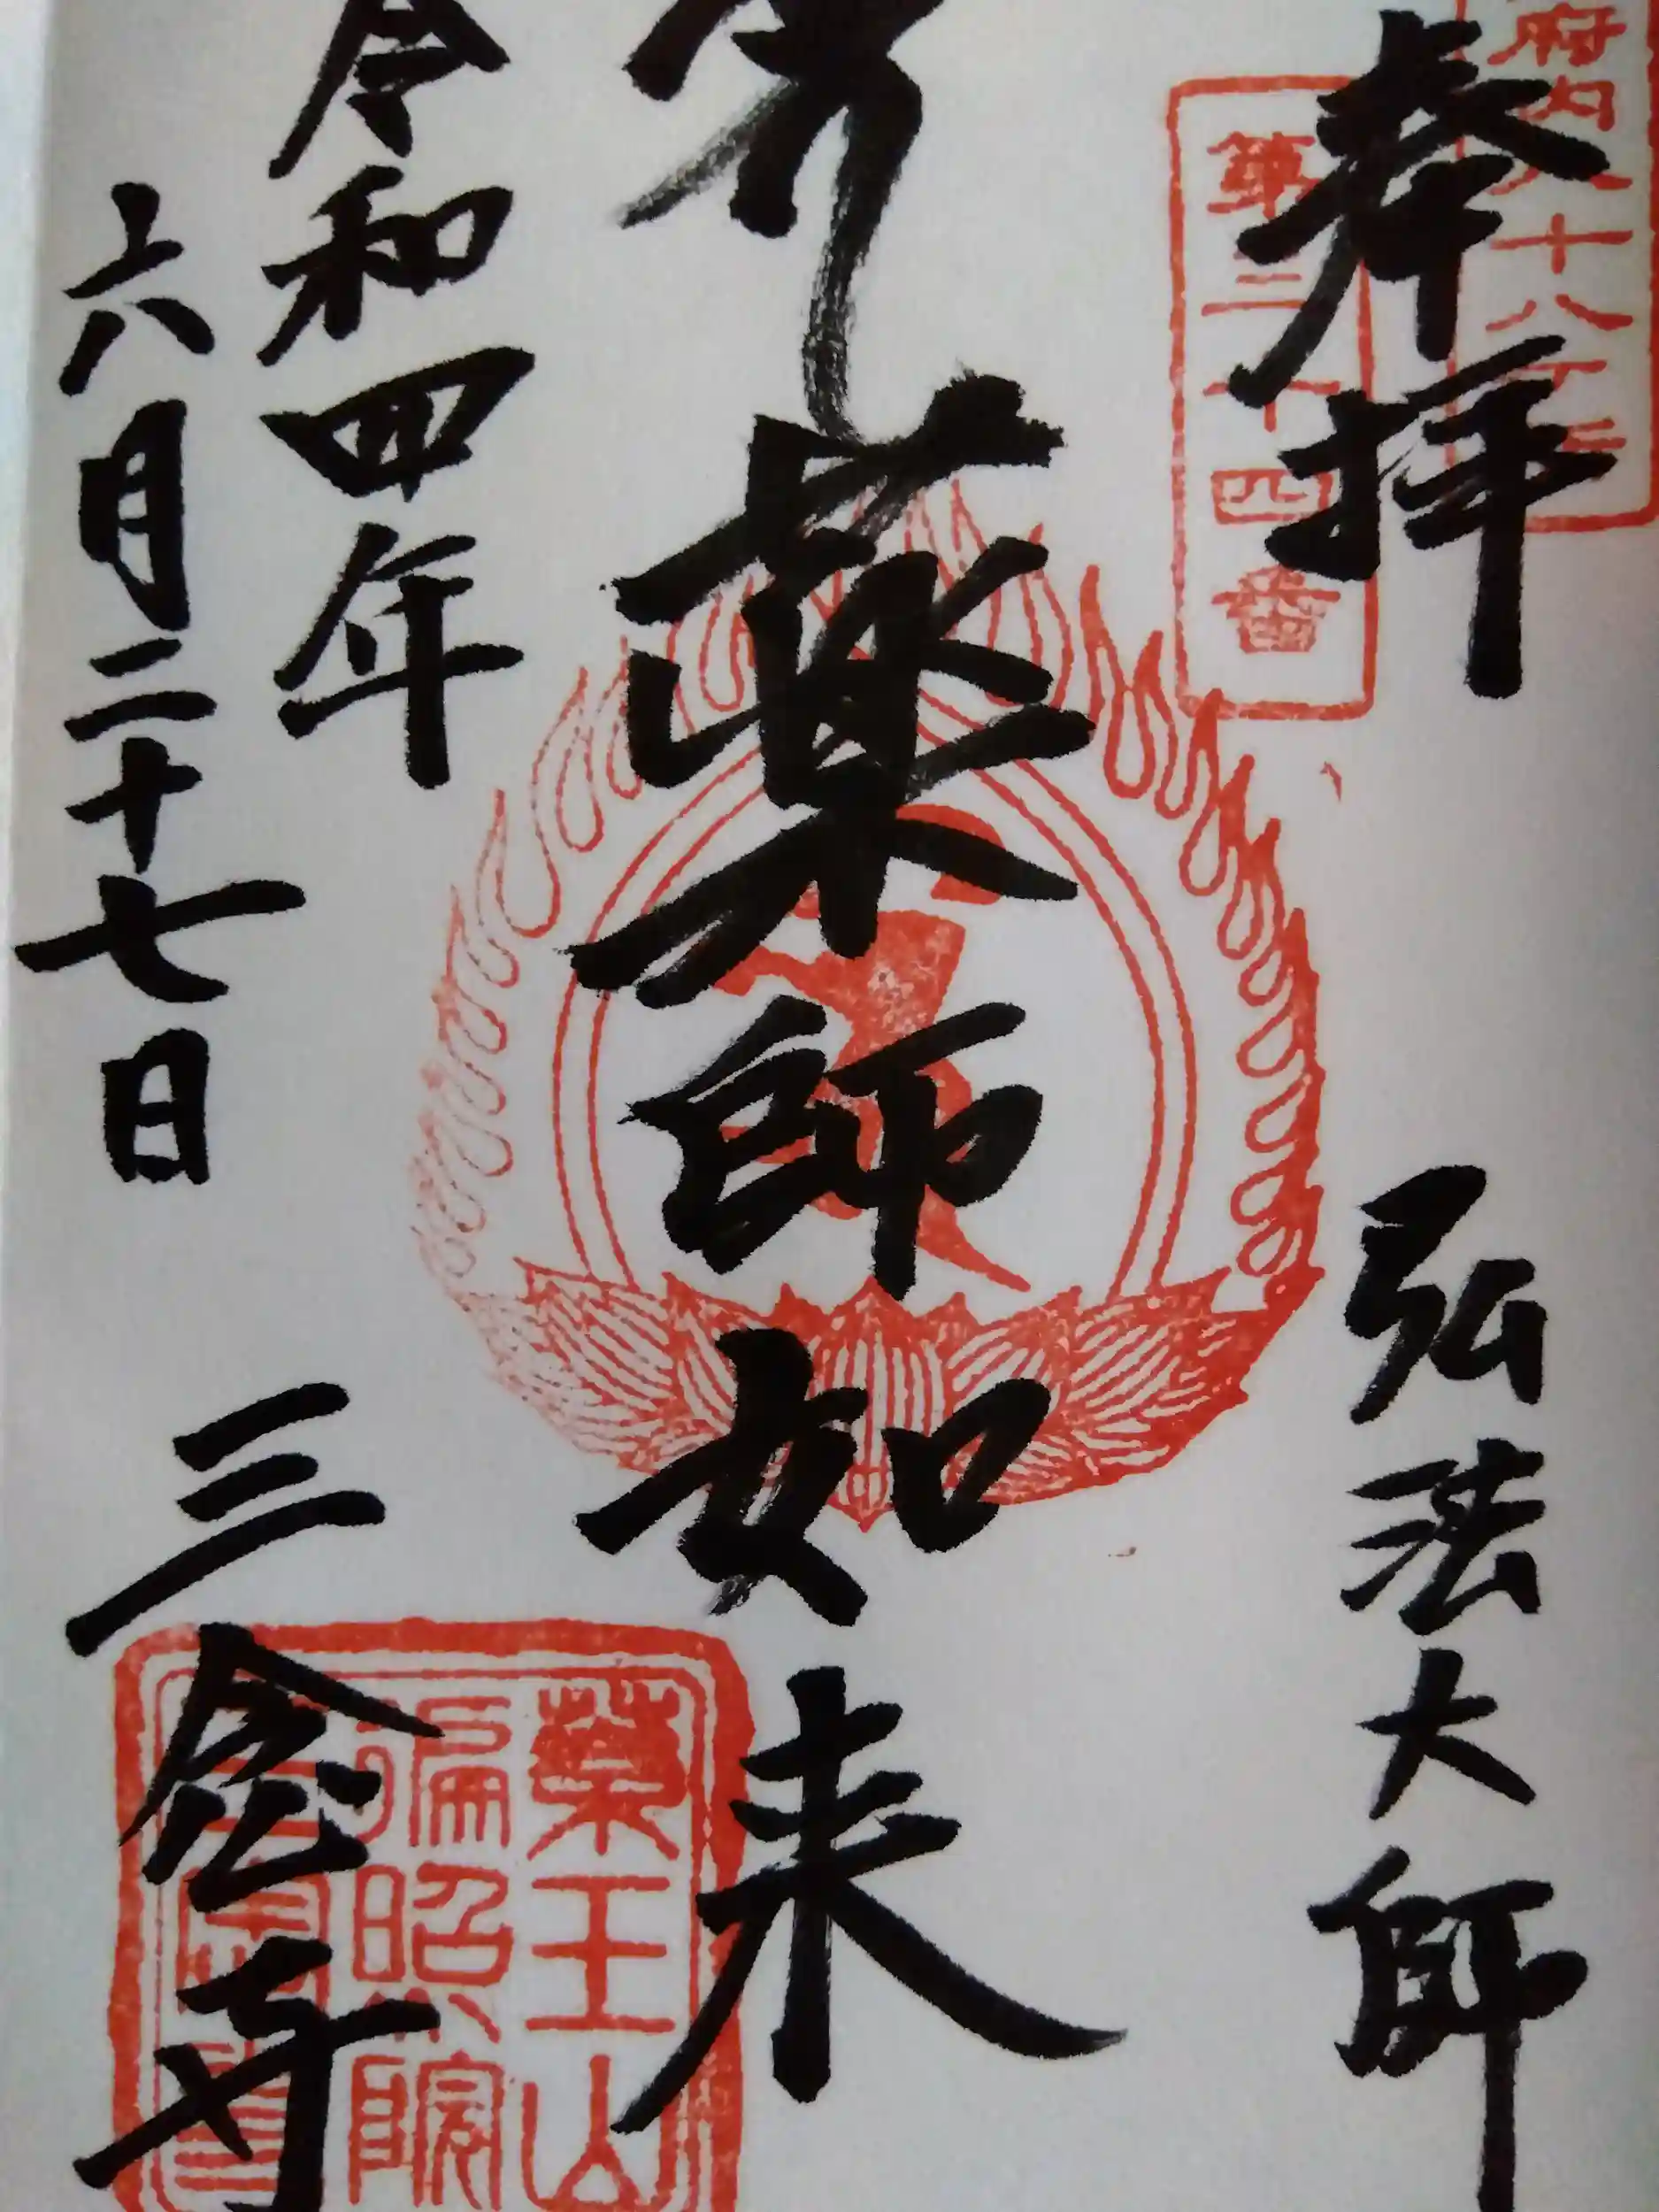 府内八十八ケ所
奉拝 弘法大師
第三十四番
薬師如来
令和四年
六月二十七日
三念寺
薬王山
遍照院